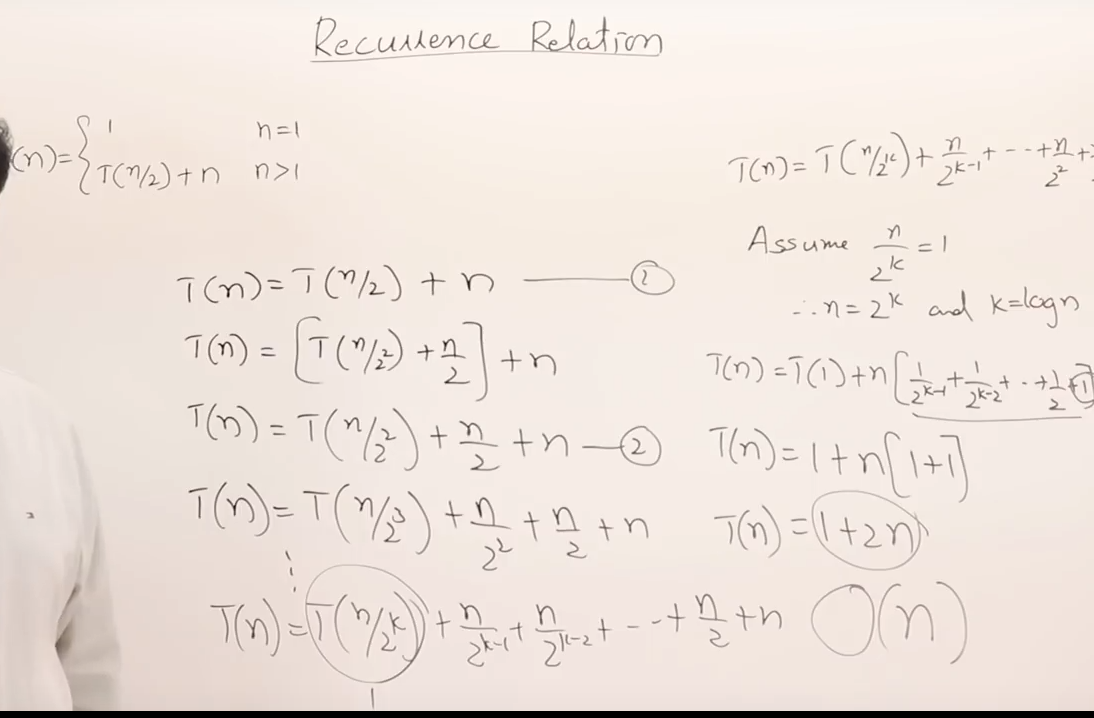 Recurrence Relation
(n)= { 1 n=1
T(n/2)+n n>1
T(n)=T(n/2)+n —— ①
T(n)=[T(n/2²)+n/2]+n
T(n)=T(n/2²)+n/2+n — ②
T(n)=T(n/2³)+n/2²+n/2+n
⋮
T(n)=T(n/2ᵏ)+n/2ᵏ⁻¹+n/2ᵏ⁻²+--+n/2+n
1
T(n)=T(n/2ᵏ)+n/2ᵏ⁻¹+--+n/2²+
Assume n/2ᵏ=1
∴n=2ᵏ and k=logn
T(n)=T(1)+n[1/2ᵏ⁻¹+1/2ᵏ⁻²+··+1/2+1]
T(n)=1+n[1+1]
T(n)=1+2n
O(n)